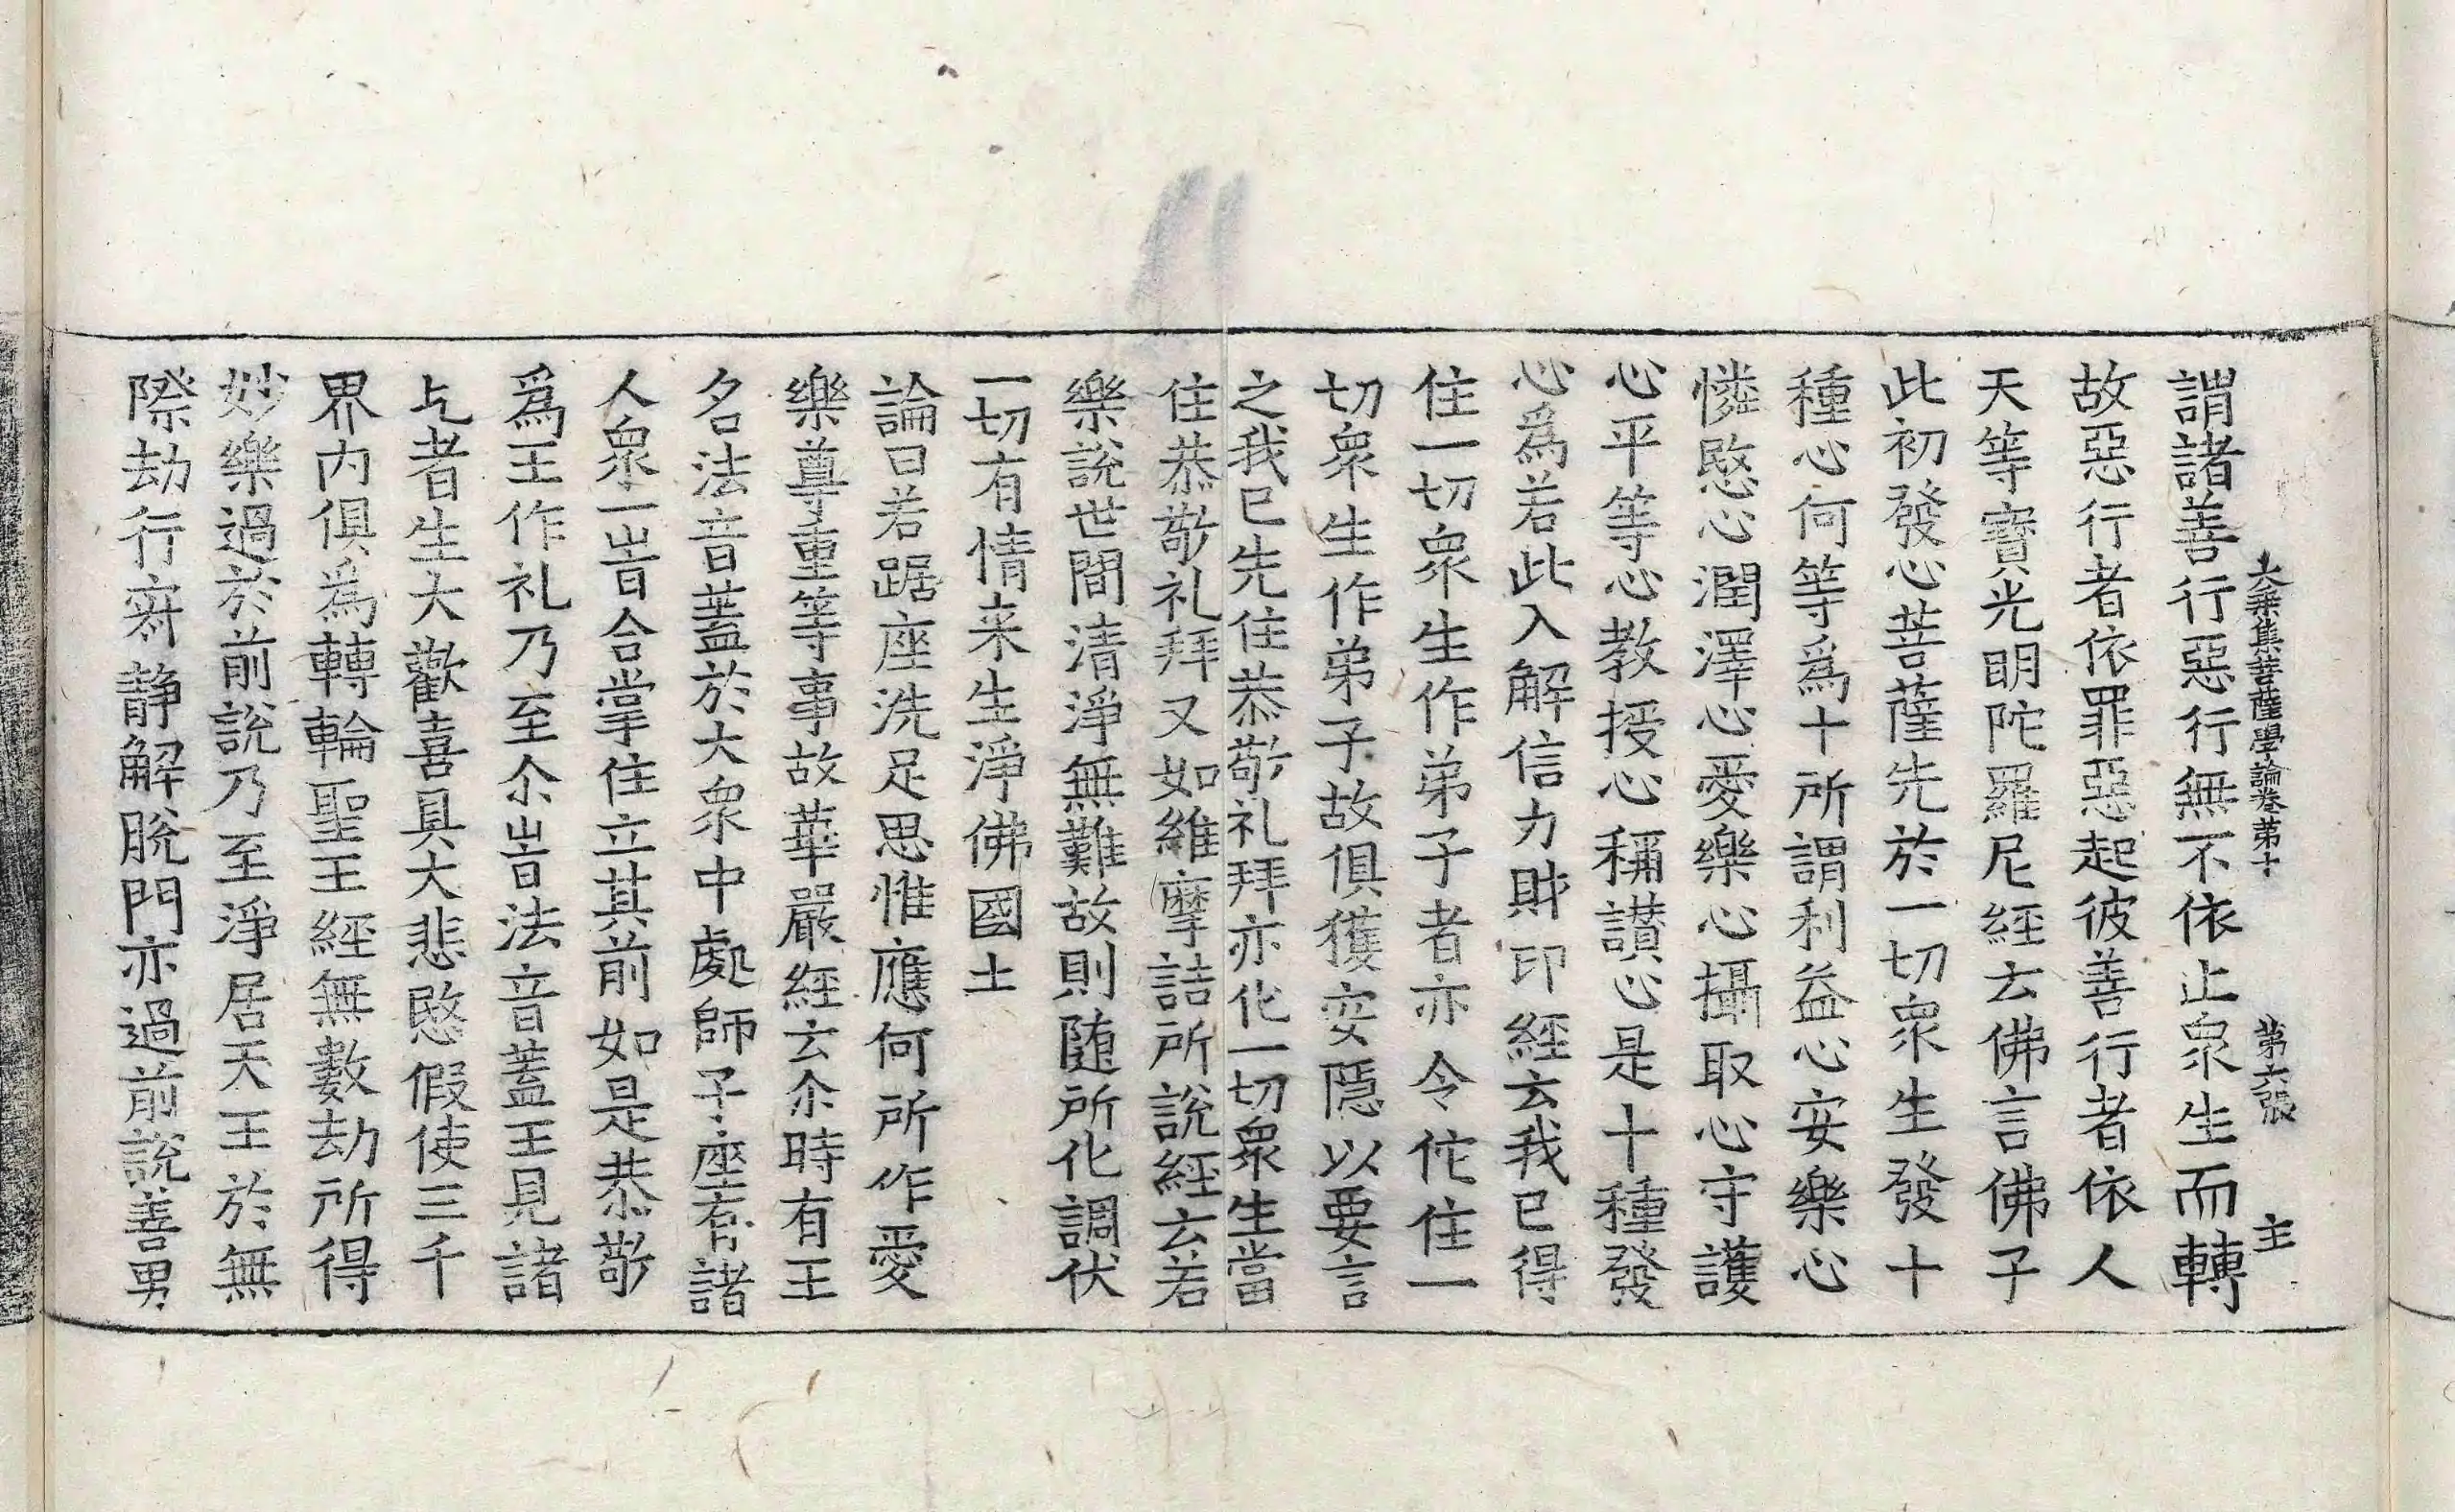 大乘集菩薩學論卷第十　第六張　主
謂諸善行惡行無不依止衆生而轉
故惡行者依罪惡起彼善行者依人
天等寶光明陀羅尼經云佛言佛子
此初發心菩薩先於一切衆生發十
種心何等爲十所謂利益心安樂心
憐愍心潤澤心愛樂心攝取心守護
心平等心教授心稱讃心是十種發
心爲若此入解信力財印經云我已得
住一切衆生作弟子者亦令佗住一
切衆生作弟子故俱獲安隱以要言
之我已先住恭敬礼拜亦化一切衆生當
住恭敬礼拜又如維摩詰所說經云若
樂說世間清淨無難故則随所化調伏
一切有情来生淨佛國土
論曰若踞座洗足思惟應何所作愛
樂尊重等事故華嚴經云尒時有王
名法音蓋於大衆中處師子座有諸
人衆一旹合掌住立其前如是恭敬
爲王作礼乃至尒旹法音蓋王見諸
乞者生大歡喜具大悲愍假使三千
界内俱爲轉輪聖王經無數劫所得
妙樂過於前說乃至淨居天王於無
際劫行寂静解脫門亦過前說善男